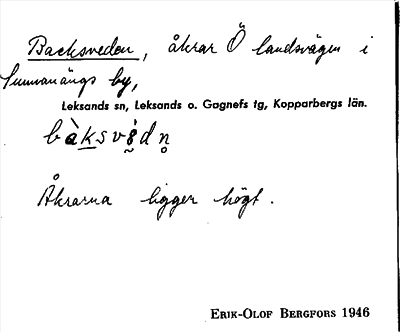 Backsveden, åkrar Ö landsvägen i
Sunnanängs by,
Leksands sn, Leksands o. Gagnefs tg, Kopparbergs län.
bàksvèdn̥
Åkrarna ligger högt.
ERIK-OLOF BERGFORS 1946